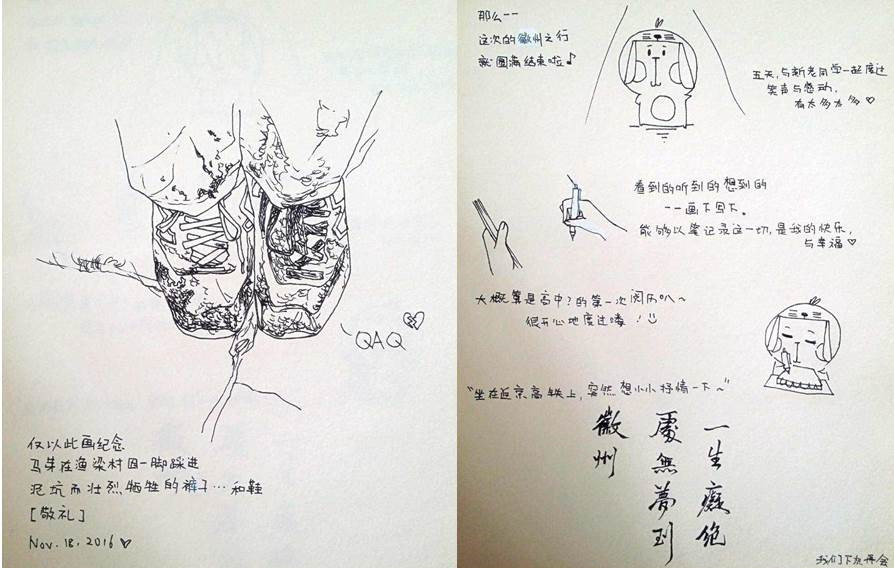 QAQ
仅以此画纪念
马在渔梁村因一脚踩进
泥坑而壮烈牺牲的裤子…和鞋
[敬礼]
Nov.18.2016♡
那么--
这次的徽州之行
就圆满结束啦♪
五天,与新老同学一起度过
笑声与感动,
有太多太多♡
看到的听到的想到的
--画下写下。
能够以笔记录这一切,是我的快乐,
与幸福♡
大概算是高中?的第一次阅历叭~
很开心地度过喽!
"坐在返京高铁上,突然想小小抒情一下~"
一生癡絶
處無夢到
徽州
我们下次再会